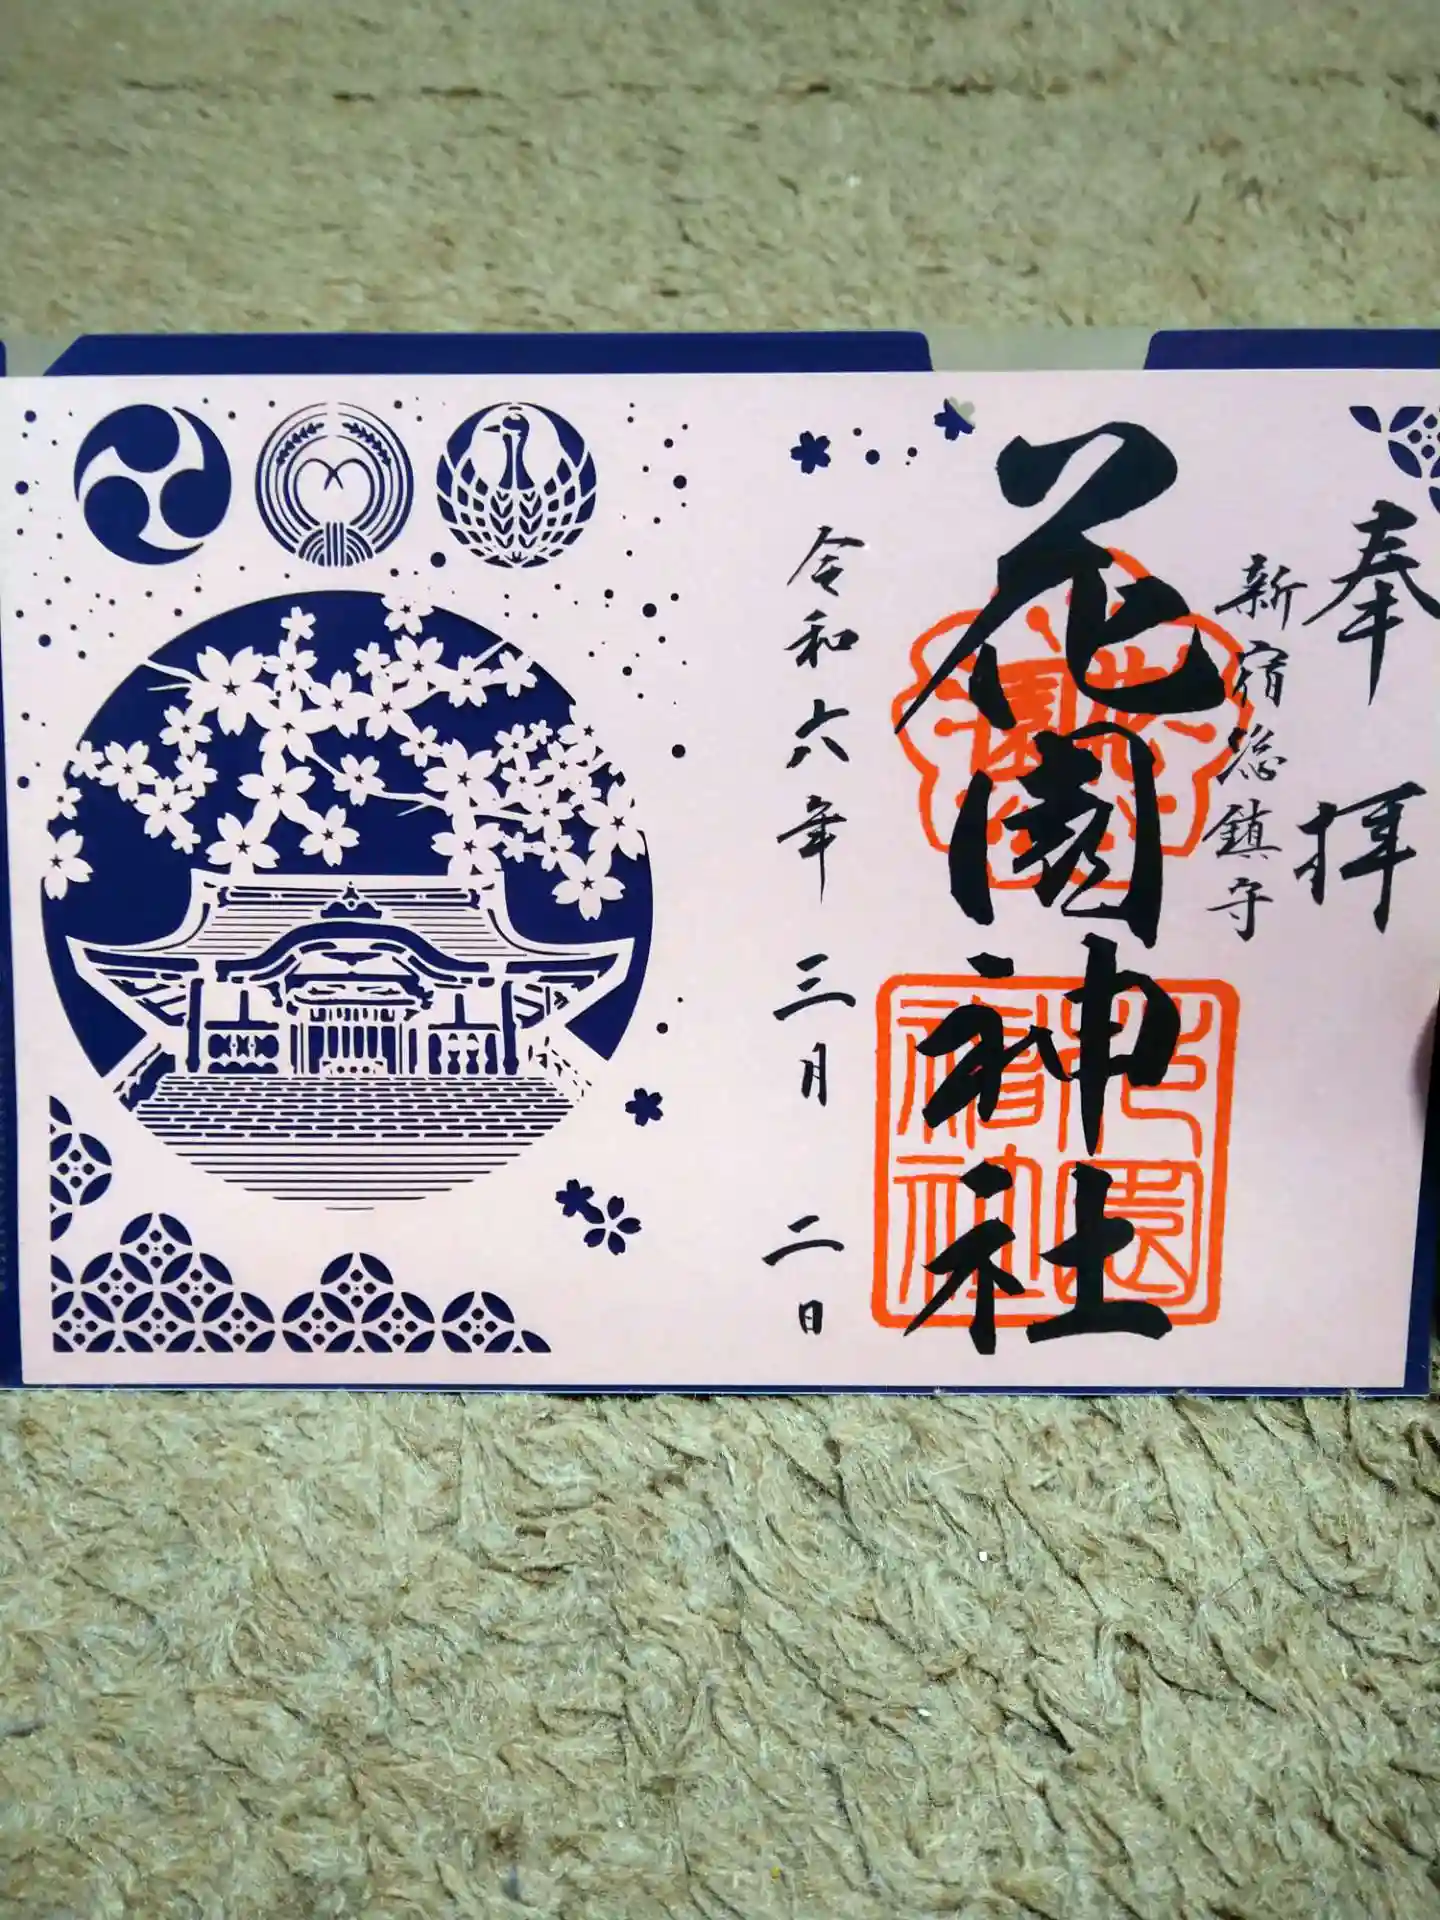 奉拝
新宿総鎮守
花園神社
花園神社
令和六年三月二日